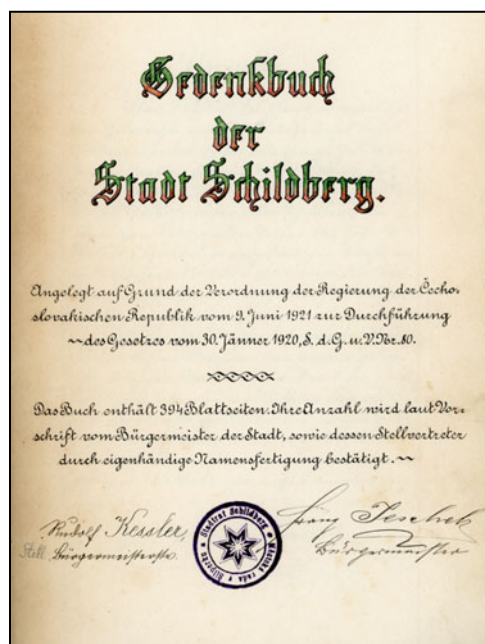 Gedenkbuch
der
Stadt Schildberg.
Angelegt auf Grund der Verordnung der Regierung der Čecho-
slovakischen Republik vom 9. Juni 1921 zur Durchführung
~ des Gesetzes vom 30. Jänner 1920, S. d. G. u. V. Nr. 80.
Das Buch enthält 394 Blattseiten. Ihre Anzahl wird laut Vor-
schrift vom Bürgermeister der Stadt, sowie dessen Stellvertreter
durch eigenhändige Namensfertigung bestätigt. ~
Rudolf Kessler
Stell. Bürgermeisterstv.
Stadtrat Schildberg * Městská rada
Franz Jeschek
Bürgermeister